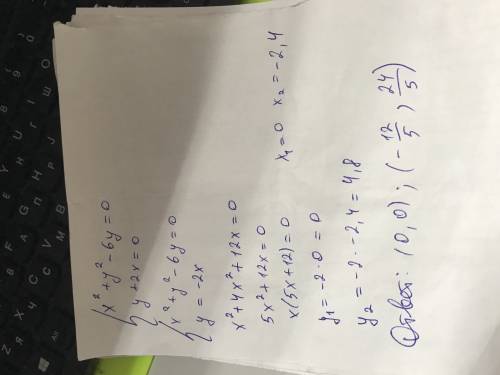 { x² + y² - 6y = 0
{ y + 2x = 0
{ x² + y² - 6y = 0
{ y = -2x
x² + 4x² + 12x = 0
5x² + 12x = 0
x(5x + 12) = 0    x₁ = 0  x₂ = -2,4
y₁ = -2 · 0 = 0
y₂ = -2 · -2,4 = 4,8
Ответ: (0,0); (-12/5, 24/5)